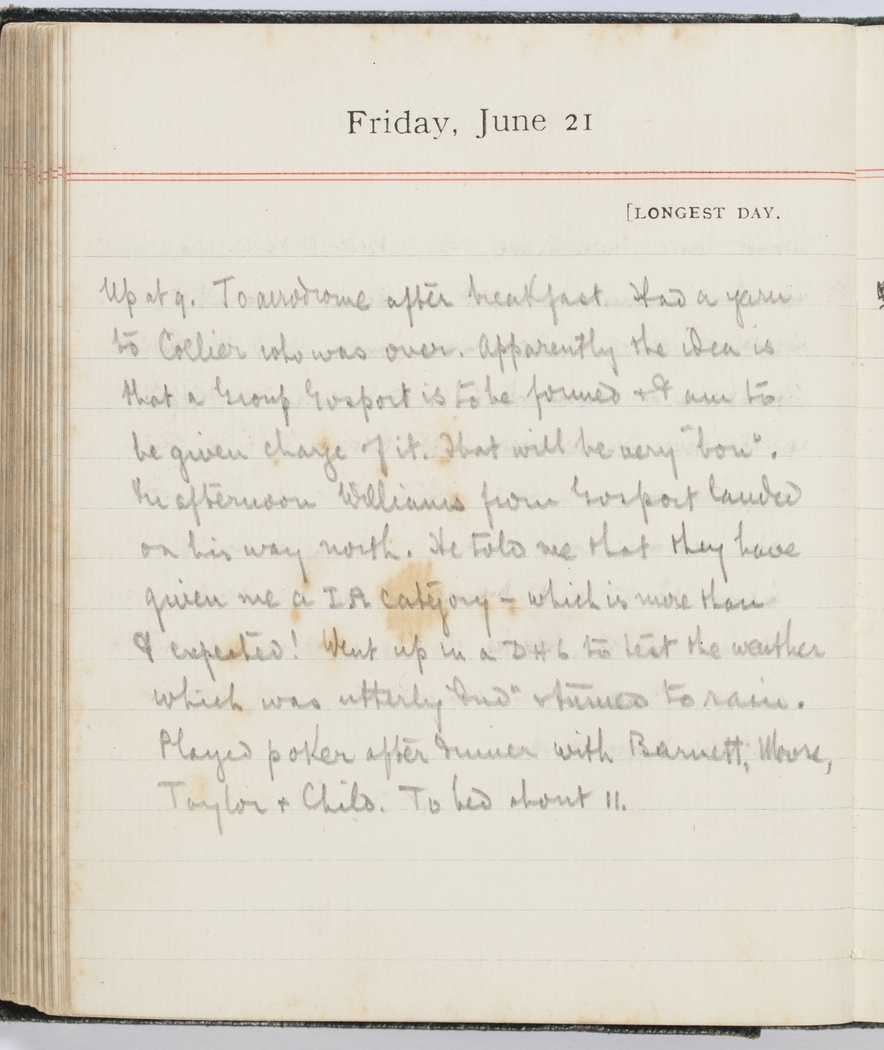 Friday, June 21
[LONGEST DAY.
Up at 9. To aerodrome after breakfast. Had a yarn
to Collier who was over. Apparently the idea is
that a Group Gosport is to be formed + I am to
be given charge of it. That will be very "bon".
In afternoon Williams from Gosport landed
on his way north. He told me that they have
given me a IA category – which is more than
I expected! Went up in a DH6 to test the weather
which was utterly "dud" + turned to rain.
Played poker after dinner with Barnett, Moore,
Taylor + Child. To bed about 11.